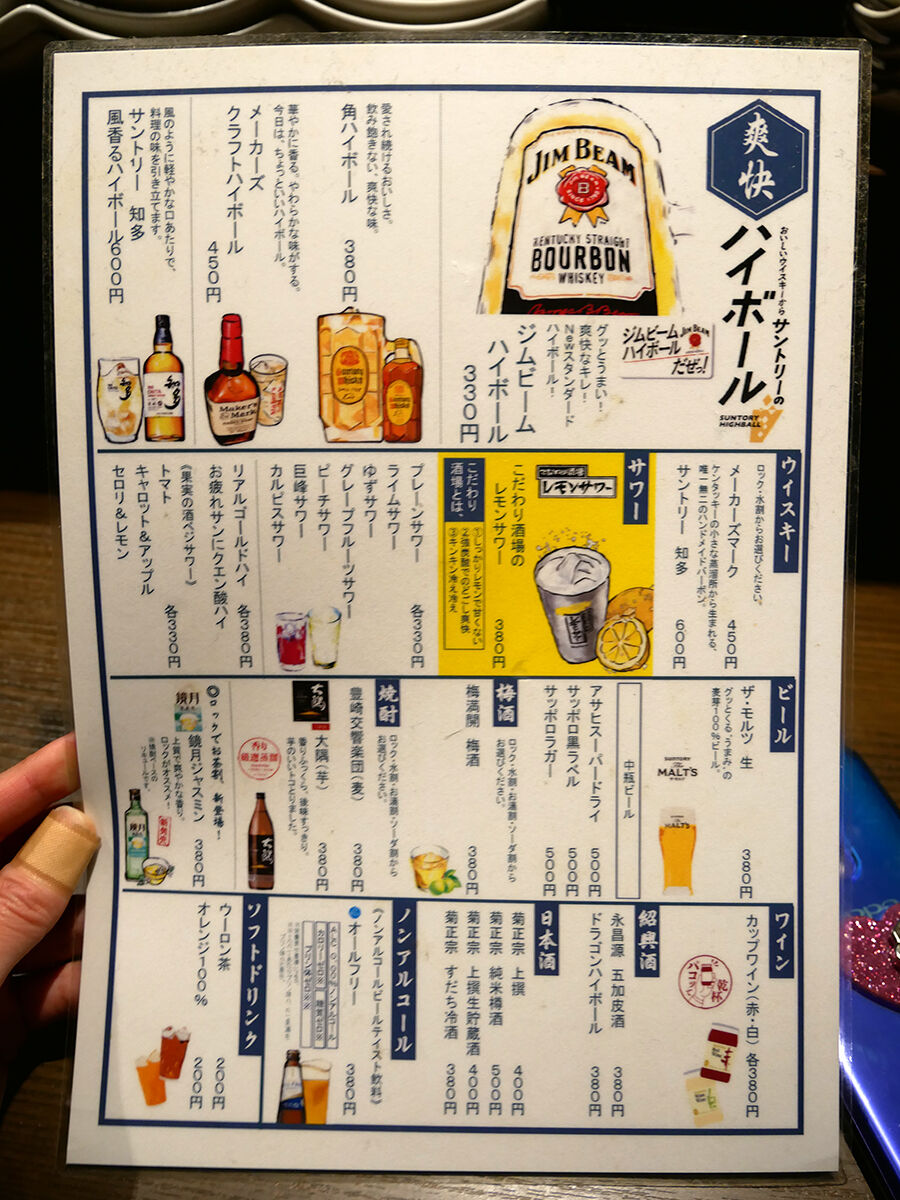 爽快
おいしいウイスキーから
サントリーの
ハイボール
SUNTORY
HIGHBALL
JIM BEAM
KENTUCKY STRAIGHT
BOURBON
WHISKEY
ジムビーム
ハイボール
だぜっ!
JIM BEAM
グッとうまい!
爽快なキレ!
Newスタンダード
ハイボール!
ジムビーム
ハイボール
330円
愛され続けるおいしさ。
飲み飽きない、爽快な味。
角ハイボール 380円
華やかに香る。やわらかな味がする。
今日は、ちょっといいハイボール。
メーカーズ
クラフトハイボール
450円
Maker's
Mark
風のように軽やかな口あたりで、
料理の味を引き立てます。
サントリー 知多
風香るハイボール600円
ウイスキー
ロック・水割からお選びください。
メーカーズマーク 450円
ケンタッキーの小さな蒸溜所から生まれる、
唯一無二のハンドメイドバーボン。
サントリー 知多 600円
サワー
こだわり酒場
レモンサワー
こだわり酒場の
レモンサワー 380円
こだわり
酒場とは、
①しっかりレモンで甘くない
②強炭酸でのどごし爽快
③キンキン冷え冷え
プレーンサワー 各330円
ライムサワー
ゆずサワー
グレープフルーツサワー
ピーチサワー
巨峰サワー
カルピスサワー
リアルゴールドハイ 各380円
お疲れサンにクエン酸ハイ
《果実の酒ベジサワー》
トマト 各330円
キャロット&アップル
セロリ&レモン
ビール
ザ・モルツ 生 380円
グッとくる、うまみ、の
麦芽100%ビール。
SUNTORY
MALT'S
中瓶ビール
アサヒスーパードライ 500円
サッポロ黒ラベル 500円
サッポロラガー 500円
梅酒
ロック・水割・お湯割・ソーダ割から
お選びください。
梅満開 梅酒 380円
焼酎
ロック・水割・お湯割・ソーダ割から
お選びください。
豊崎交響楽団(麦) 380円
大隅
大隅(芋) 380円
香りふっくら、後味すっきり。
芋のいいトコとりました。
香り
厳選蒸溜
◎ロックでお茶割、新登場!
鏡月
鏡月ジャスミン 380円
上質で爽やかな香り。
ロックがオススメ!
※焼酎ベースの
リキュールです。
新発売
ワイン
カップワイン(赤・白) 各380円
乾杯
パコッ
紹興酒
永昌源 五加皮酒 380円
ドラゴンハイボール 380円
日本酒
菊正宗 上撰 400円
菊正宗 純米樽酒 500円
菊正宗 上撰生貯蔵酒 400円
菊正宗 すだち冷酒 380円
ノンアルコール
《ノンアルコールビールテイスト飲料》
オールフリー 380円
カロリーゼロ※ 糖質ゼロ※
プリン体ゼロ※
ソフトドリンク
ウーロン茶 200円
オレンジ100% 200円